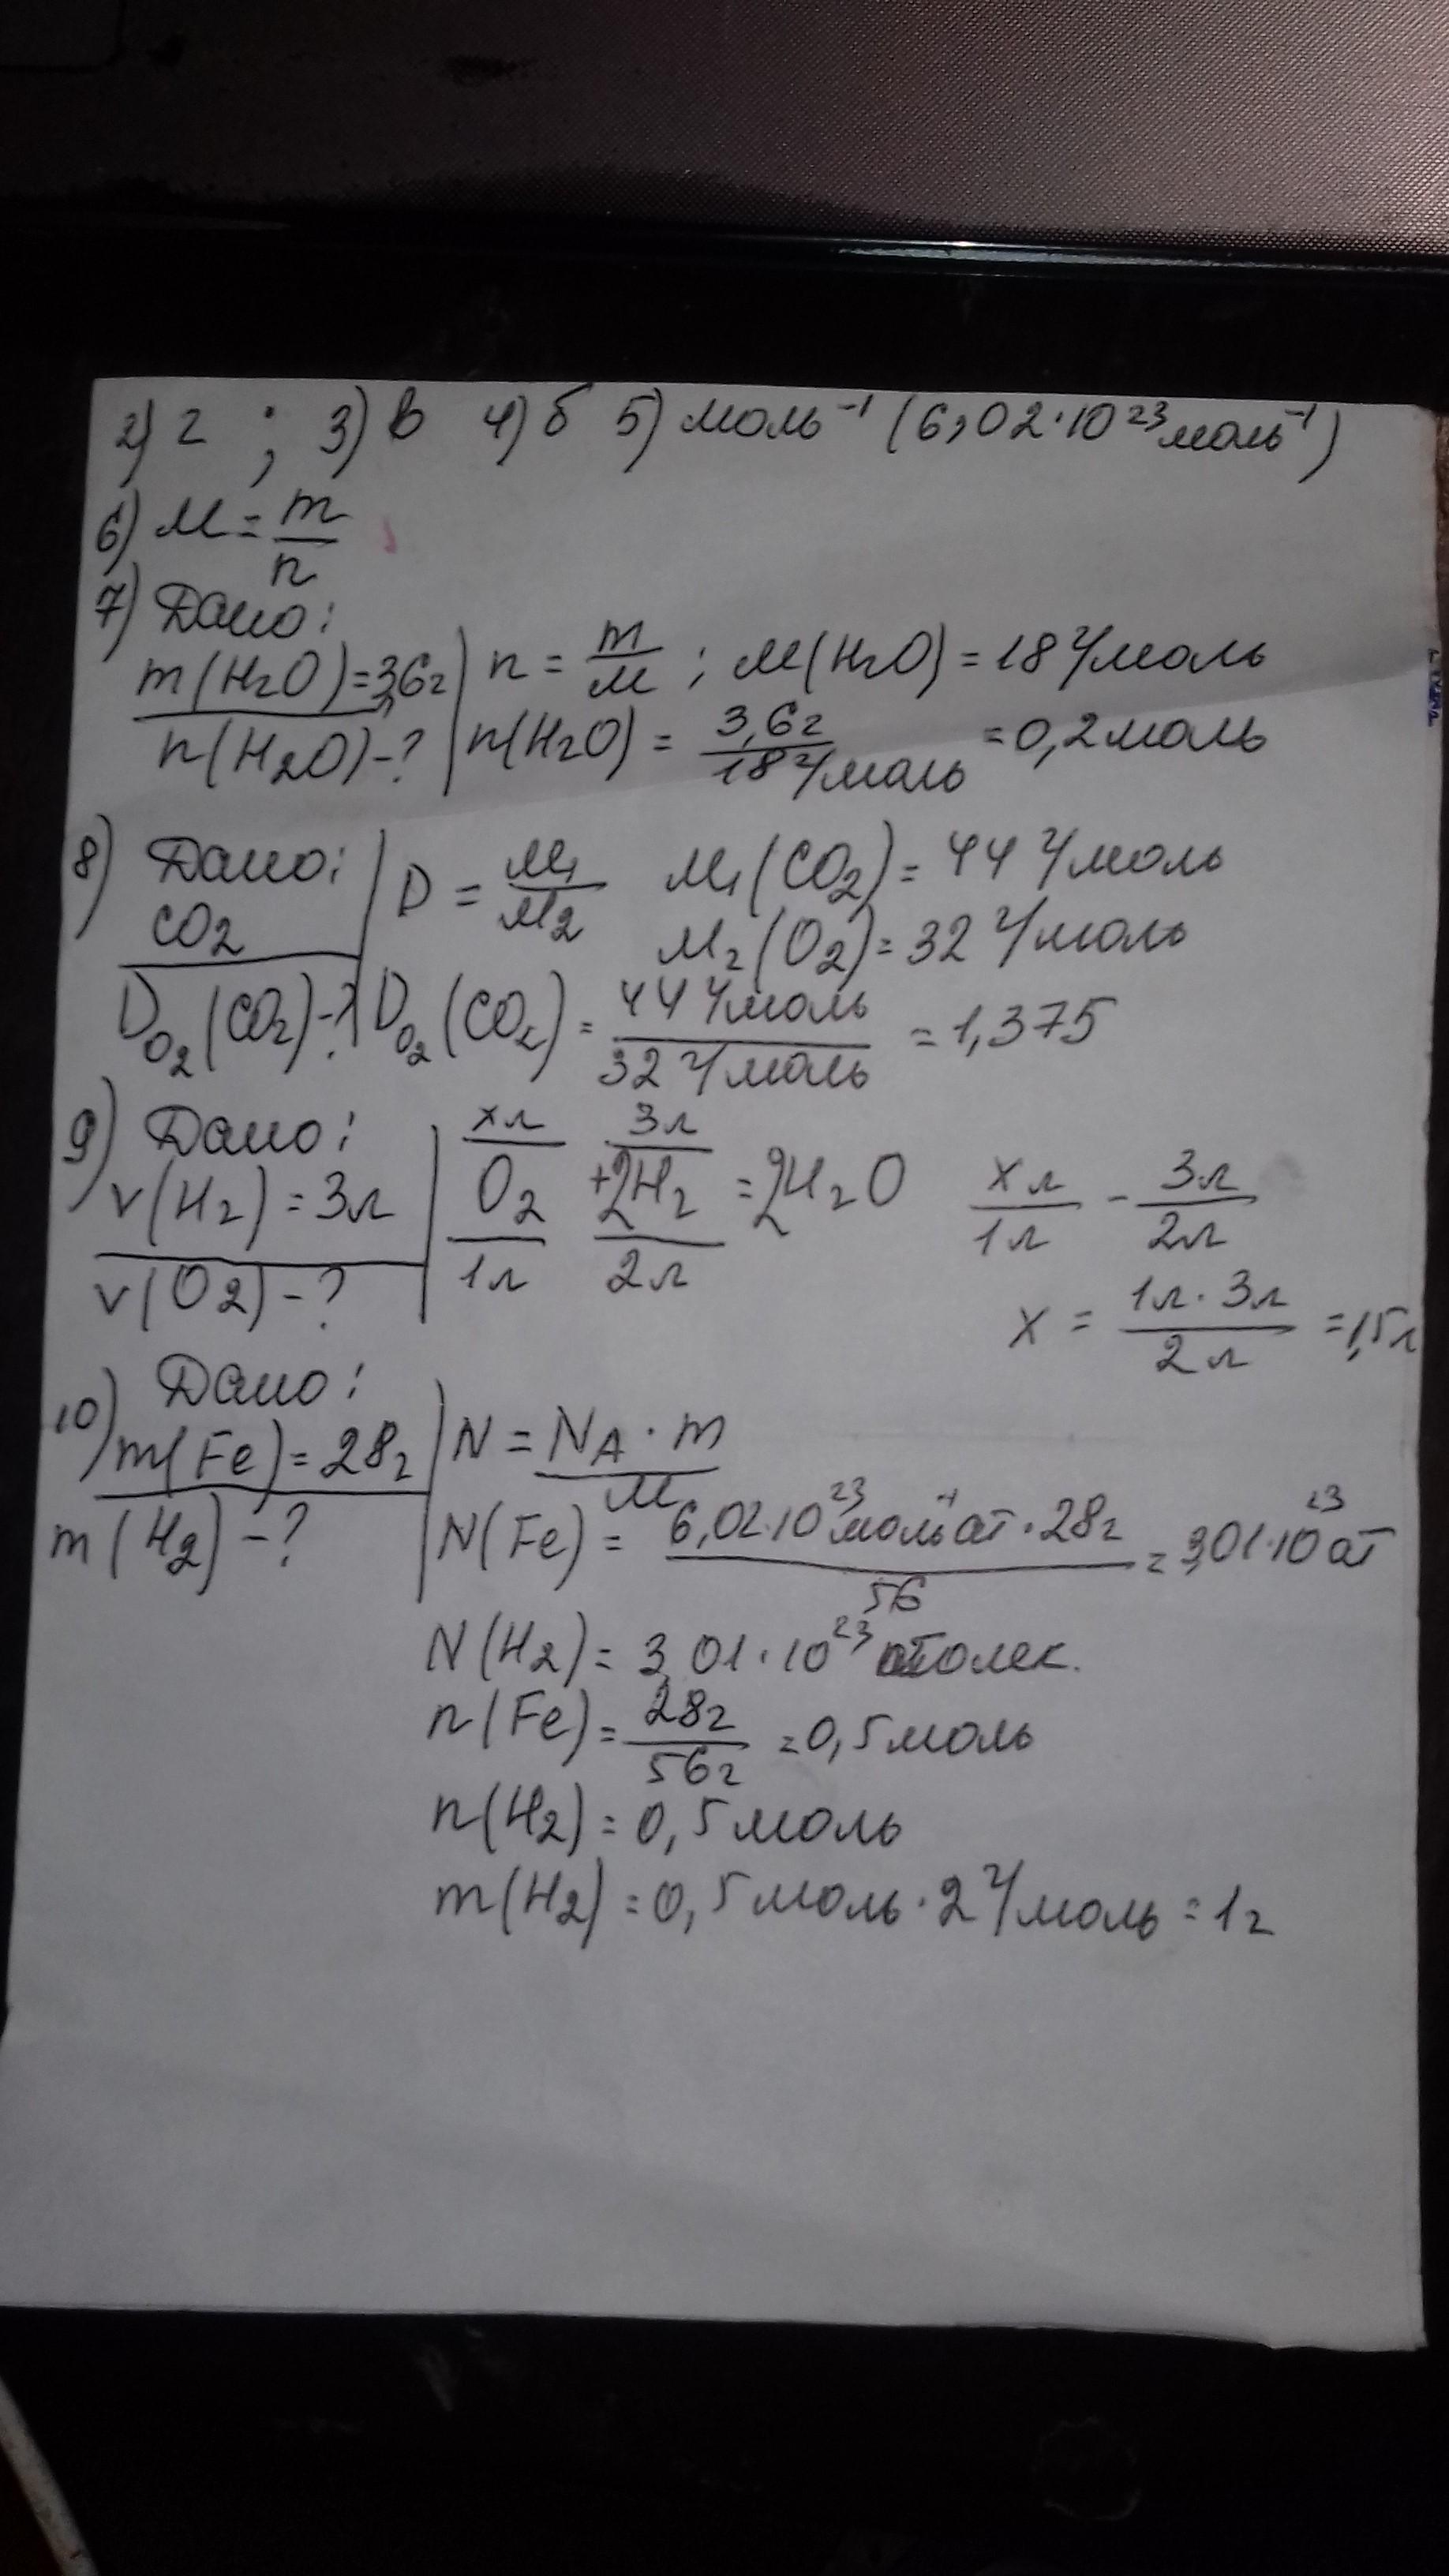 2) г ; 3) в 4) б 5) моль⁻¹ (6,02·10²³ моль⁻¹)
6) M = m/n
7) Дано:
m(H₂O)=3,6г | n = m/M ; M(H₂O) = 18 г/моль
n(H₂O)-? | n(H₂O) = 3,6г/18 г/моль = 0,2 моль
8) Дано: | D = M₁/M₂ M₁(CO₂) = 44 г/моль
CO₂ M₂(O₂) = 32 г/моль
D O₂ (CO₂)-? | D O₂ (CO₂) = 44 г/моль / 32 г/моль = 1,375
9) Дано: | хл 3л
v(H₂) = 3л | O₂ + 2H₂ = 2H₂O хл/1л - 3л/2л
v(O₂) - ? | 1л 2л
x = 1л · 3л / 2л = 1,5л
10) Дано:
m(Fe) = 28г | N = N_A · m / M
m(H₂) - ? | N(Fe) = 6,02·10²³ моль⁻¹ ат · 28г / 56 = 3,01·10²³ ат
N(H₂) = 3,01·10²³
n(Fe) = 28г/56г = 0,5 моль
n(H₂) = 0,5 моль
m(H₂) = 0,5 моль · 2 г/моль = 1г